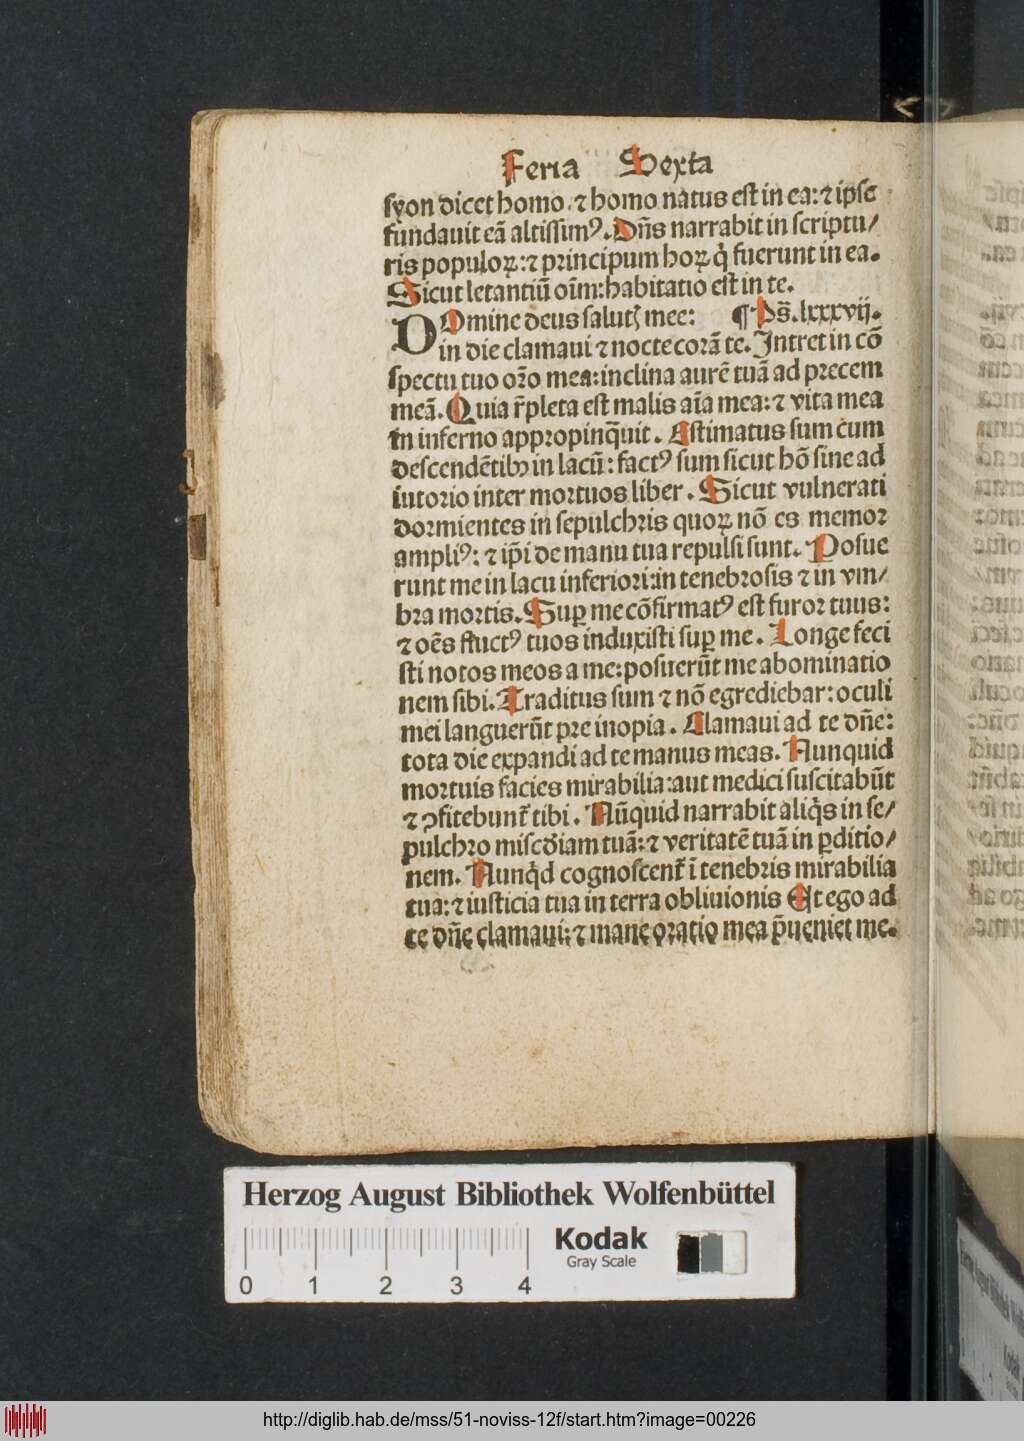 Feria Sexta
syon dicet homo ⁊ homo natus est in ea: ⁊ ipse
fundauit eā altissimꝰ. Dn̄s narrabit in scriptu/
ris populoꝝ: ⁊ principum hoꝝ q̇ fuerunt in ea.
Sicut letantiū oīm: habitatio est in te.
DOmine deus salutꝭ mee: ¶ Ps̄. lxxxvij.
in die clamaui ⁊ nocte corā te. Intret in cō
spectu tuo or̄o mea: inclina aurē tuā ad precem
meā. Quia r̄pleta est malis aīa mea: ⁊ vita mea
in inferno appropinq̄uit. Estimatus sum cum
descendētibꝫ in lacū: factꝰ sum sicut hō sine ad
iutorio inter mortuos liber. Sicut vulnerati
dormientes in sepulchris quoꝝ nō es memor
ampliꝰ: ⁊ ip̄i de manu tua repulsi sunt. Posue
runt me in lacu inferiori: in tenebrosis ⁊ in vm/
bra mortis. Suꝑ me cōfirmatꝰ est furor tuus:
⁊ oēs fluctꝰ tuos induxisti suꝑ me. Longe feci
sti notos meos a me: posuerūt me abominatio
nem sibi. Traditus sum ⁊ nō egrediebar: oculi
mei languerūt pre inopia. Clamaui ad te dn̄e:
tota die expandi ad te manus meas. Nunquid
mortuis facies mirabilia: aut medici suscitabūt
⁊ ꝯfitebunt̄ tibi. Nūquid narrabit aliq̇s in se/
pulchro misc̄diam tuā: ⁊ veritatē tuā in ꝑditio/
nem. Nunq̇d cognoscent̄ ī tenebris mirabilia
tua: ⁊ iusticia tua in terra obliuionis Et ego ad
te dn̄e clamaui: ⁊ mane oratio mea p̄ueniet me.
Herzog August Bibliothek Wolfenbüttel
Kodak
Gray Scale
0 1 2 3 4
http://diglib.hab.de/mss/51-noviss-12f/start.htm?image=00226